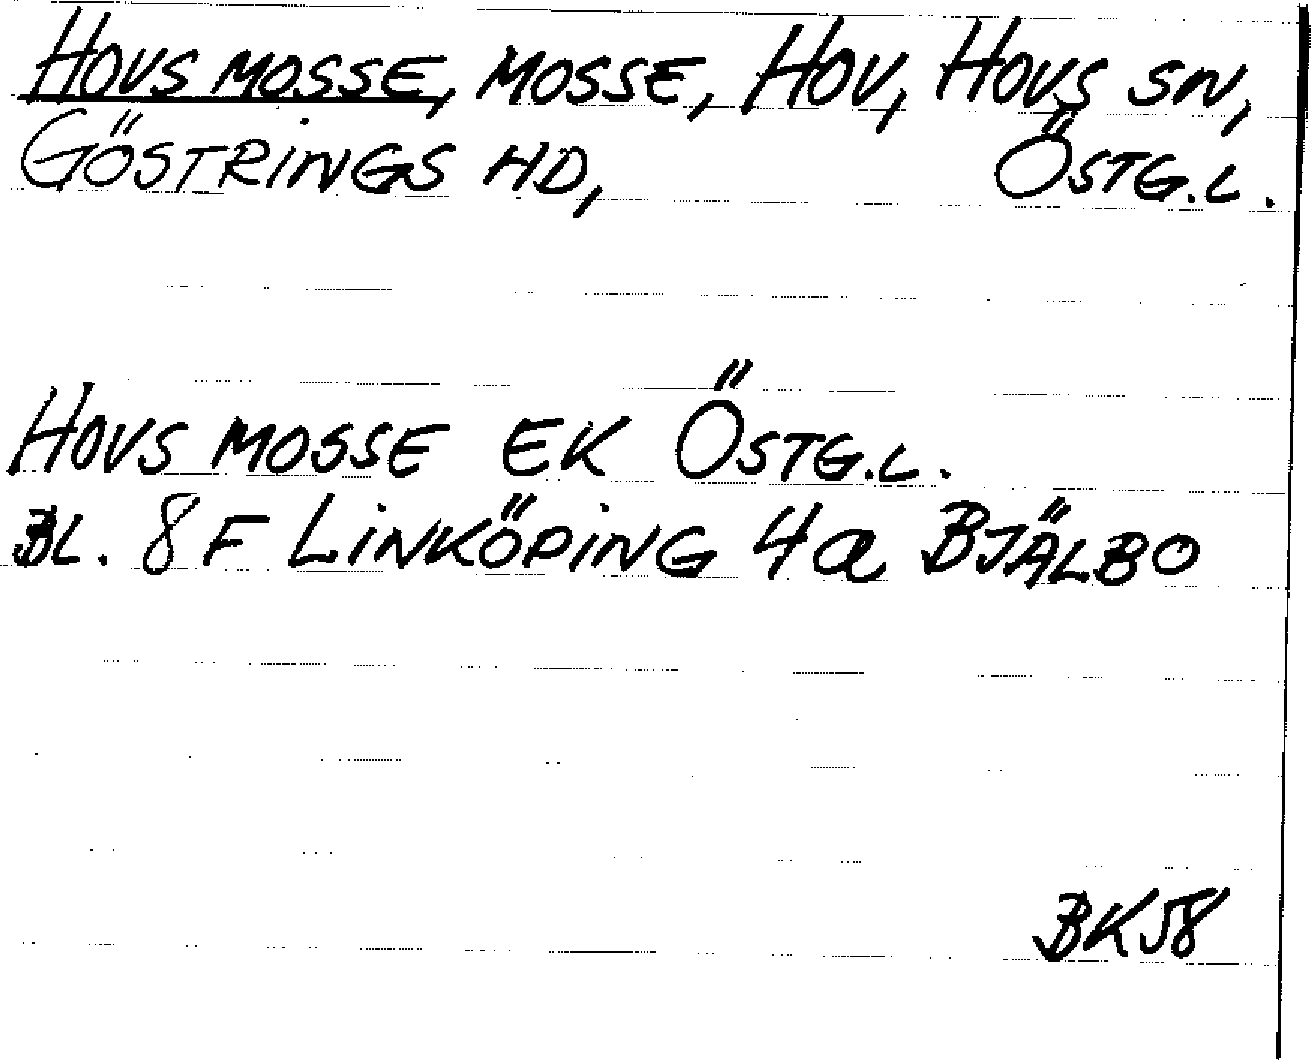 HOVS MOSSE, MOSSE, HOV, HOVS SN,
GÖSTRINGS HD, ÖSTG.L.
HOVS MOSSE EK ÖSTG.L.
BL. 8F LINKÖPING 4a BJÄLBO
BK58